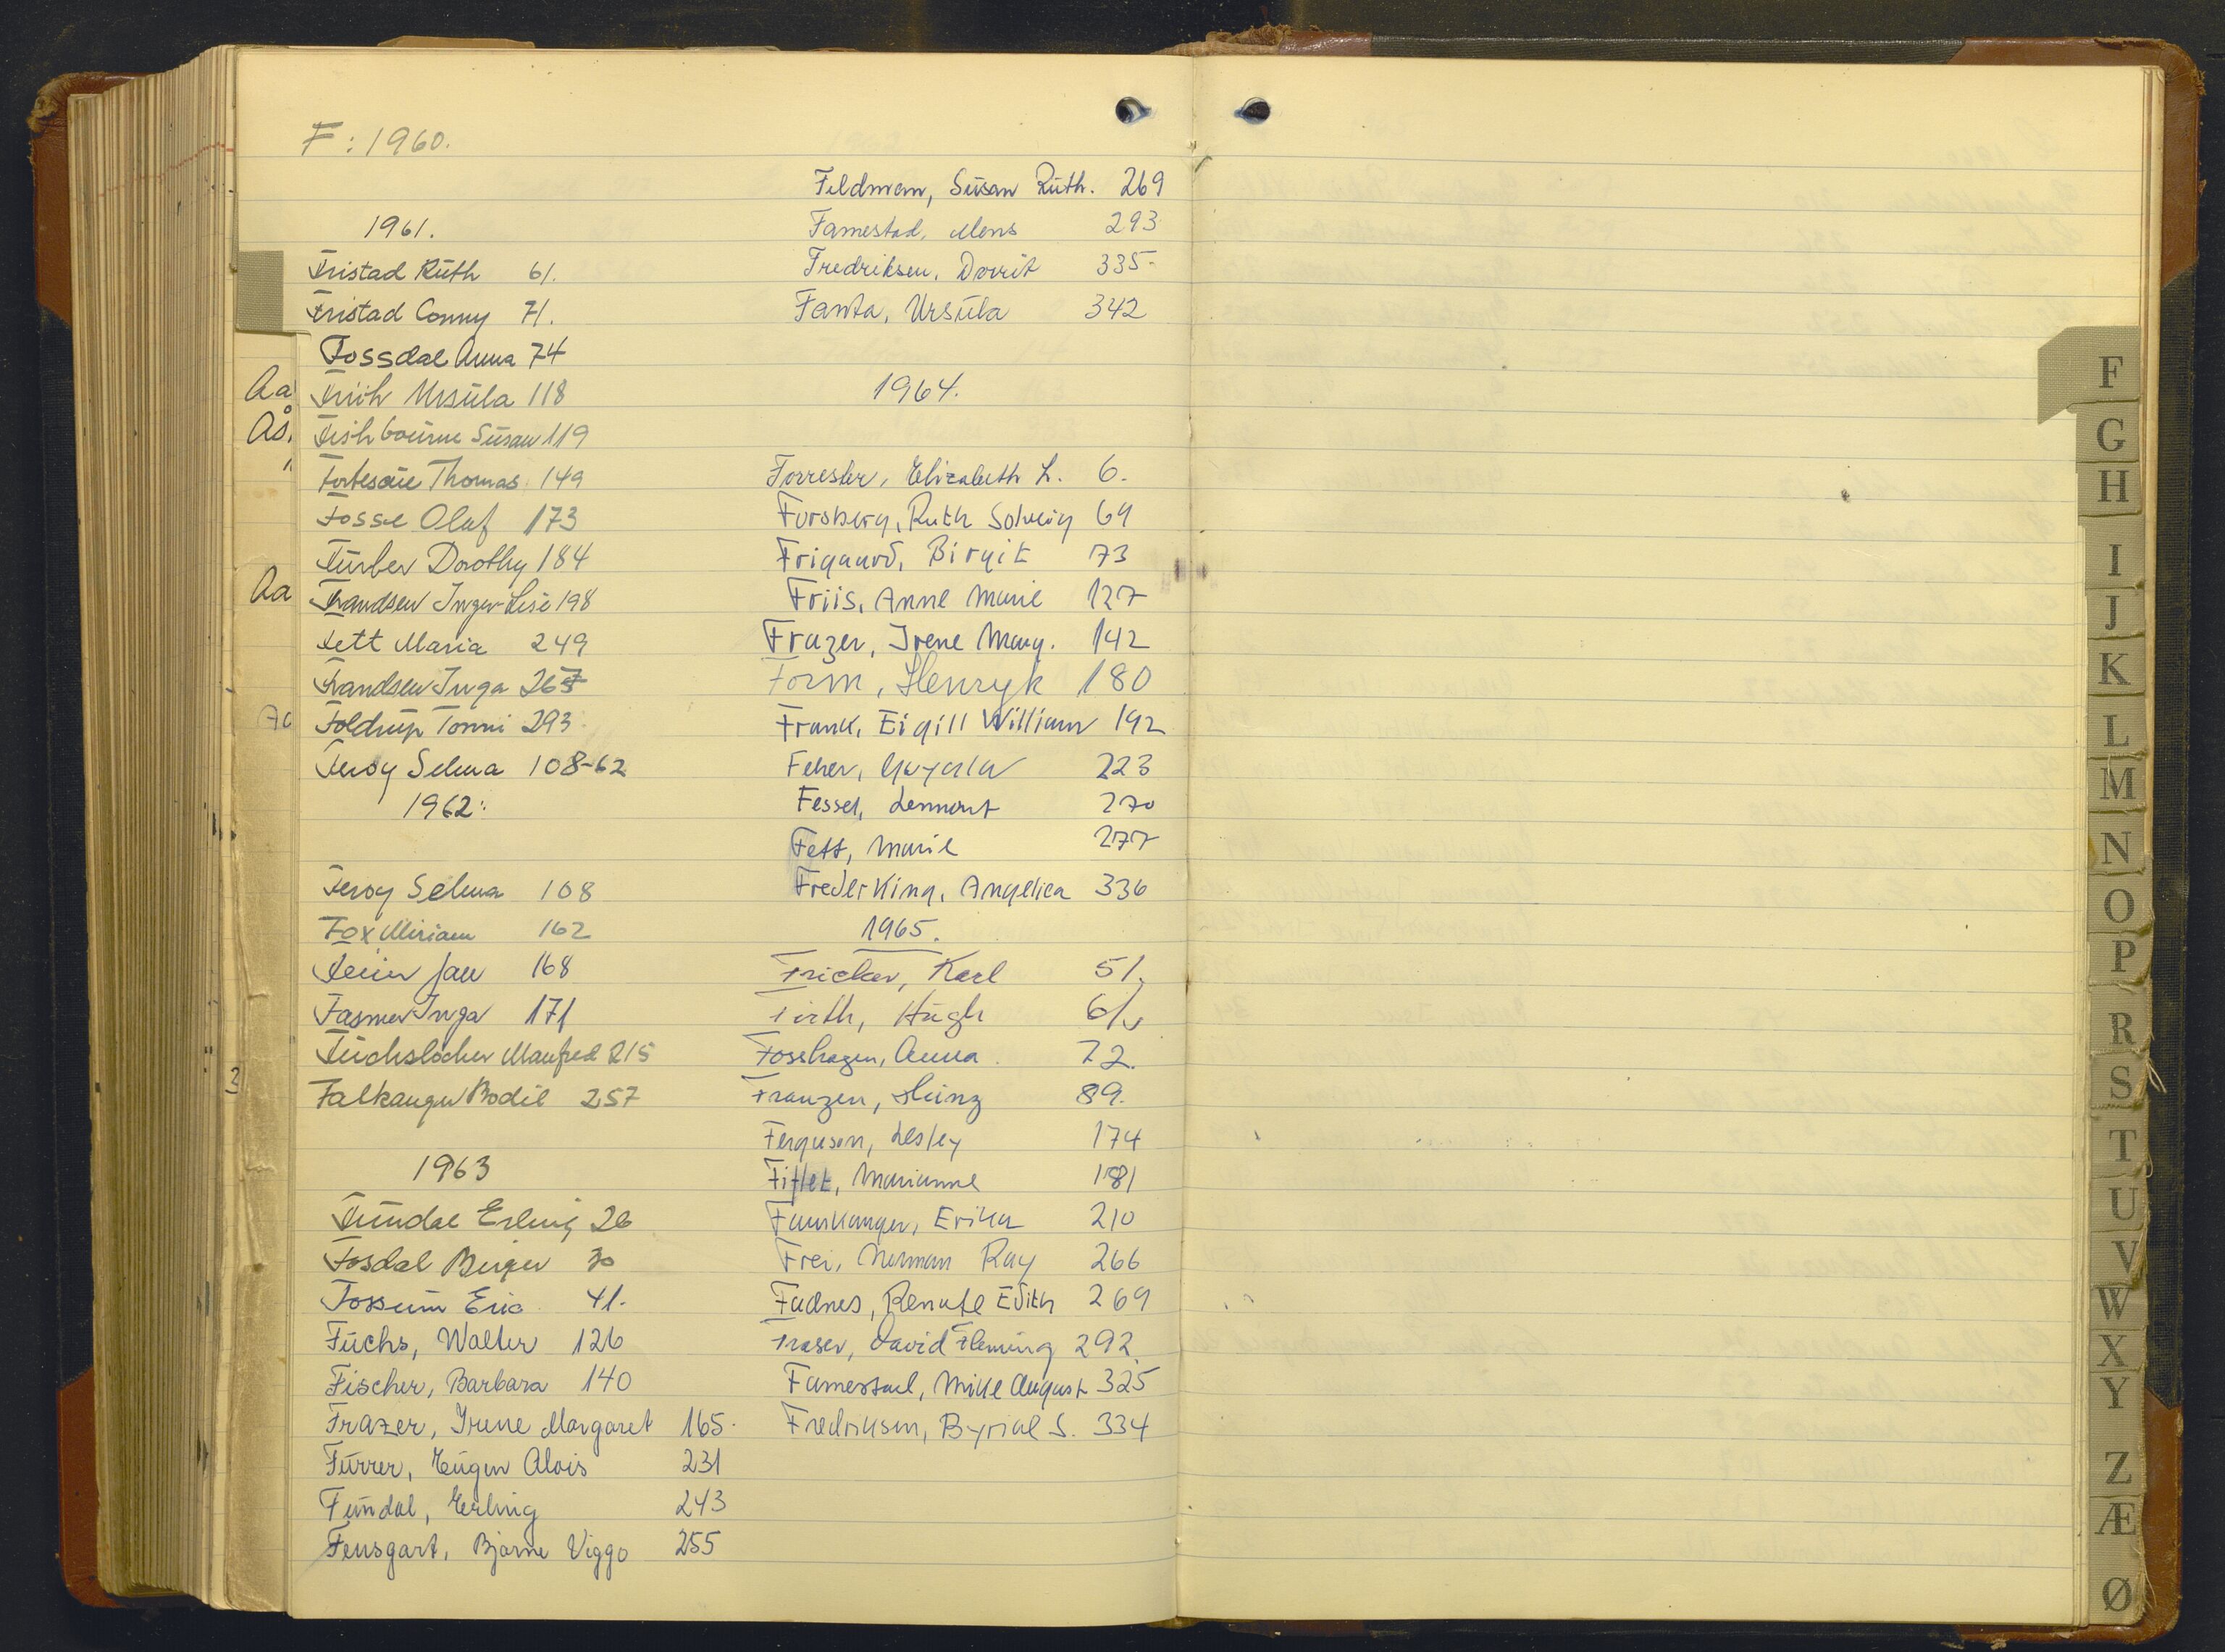 F: 1960.
1961.
Fristad Ruth 61.
Fristad Conny 71.
Fossdal Anna 74
Ursula 118
Fishbourne Susan 119
Fortescue Thomas 149
Fosse Olaf 173
Furber Dorothy 184
Frandsen Inger-Lise 198
Fett Maria 249
Frandsen Inga
Foldrup Tonni 293
Ferøy Selma 108-62
1962:
Ferøy Selma 108
Fox Miriam 162
Jan 168
Fasmer Inga 171
Füchslocher Manfred 215
Falkanger Bodil 257
1963
Fundal Erling 26
Fosdal Birger 30
Fossum Eric 41.
Fuchs, Walter 126
Fischer, Barbara 140
Frazer, Irene Margaret 165.
Furrer, Eugen Alois 231
Fundal, Erling 243
Fensgart, Bjarne Viggo 255
Feldman, Susan Ruth. 269
Famestad, Mons 293
Fredriksen, Dorrit 335-
Fanta, Ursula 342
1964.
Forrester, Elizabeth L. 6.
Forsberg, Ruth Solveig 69
Frigaard, Birgit 73
Friis, Anne Marie 127
Frazer, Irene Marg. 142
Form, Henryk 180
Frank, Eigill William 192
Feher, 223
Fessel, Lennart 270
Fett, Marie 277
Frederking, Angelica 336
1965.
Fricker, Karl 51.
Firth, Hugh 61.
Fosshagen, Anna. 72.
Franzen, Heinz 89.
Ferguson, Lesley 174
Marianne 181
Fauskanger, Erika 210
Frei, Norman Ray 266
Fadnes, Renate Edith 269
Fraser, David Fleming 292.
Famestad, August 325
Fredriksen, Byrial S. 334
Aa
Ås.
"
Aa
F
G
H
I
J
K
L
M
N
O
P
R
S
T
U
V
W
X
Y
Z
Æ
Ø